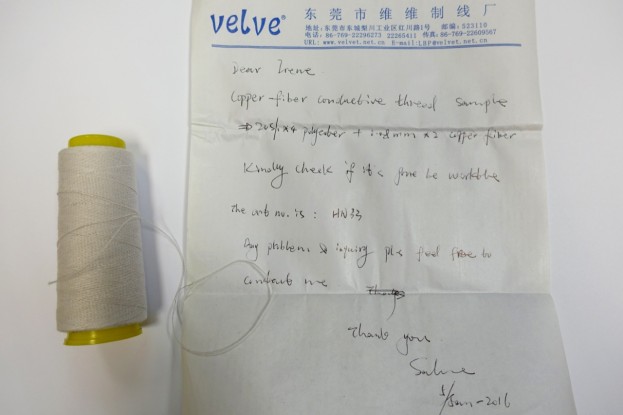 velve® 东莞市维维制线厂
地址:东莞市东城梨川工业区红川路1号 邮编:523110
电话:86-769-22296273 22265411 传真:86-769-22609567
URL: www.velvet.net.cn E-mail:LBF@velvet.net.cn
Dear Irene
Copper-fiber conductive thread sample
⇒ 20S/1×4 polyester + 0.08mm ×2 copper fiber
Kindly check if it's fine be workble
The no. is: HN33
Any problem & inquiry pls feel free to
contact me
Thank you
5/Jan-2016